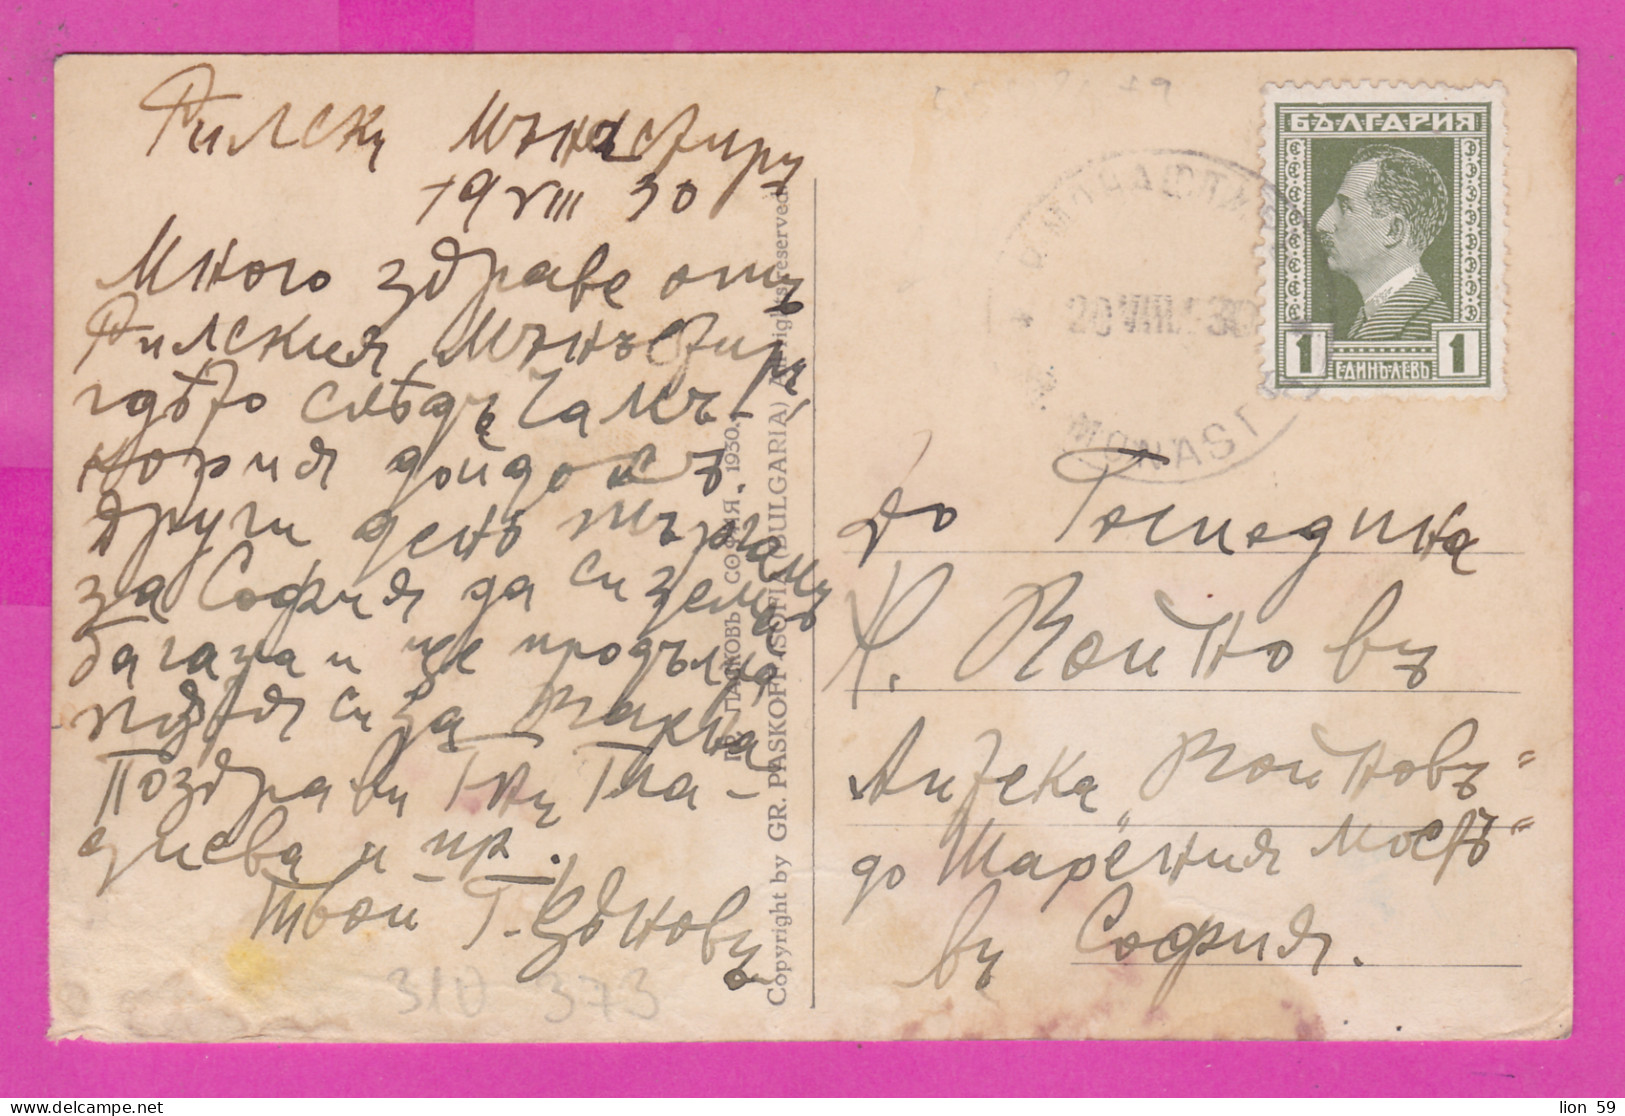 Рилски Мънастирц
19 VIII 30
Много здраве отъ
Рилския Мънъстиръ
гдѣто слѣдъ Чамъ-
кория дойдохъ.
Други день търгамъ
за София да си зема
багажа и ще продължа
пѫтя си за Варна
Поздрави Г-жи Гла-
диева и пр.
Твой Г. Цѣновъ
310 373
ГР. ПАСКОВЪ СОФИЯ 1930.
Copyright by GR. PASKOFF (SOFIA BULGARIA) All rights reserved.
БЪЛГАРИЯ
1 ЕДИНЪ ЛЕВЪ 1
20 VIII 30
MONAST
До Господина
Х. Войновъ
Аптека Войновъ"
до "Шарения мостъ"
въ София.
lion 59